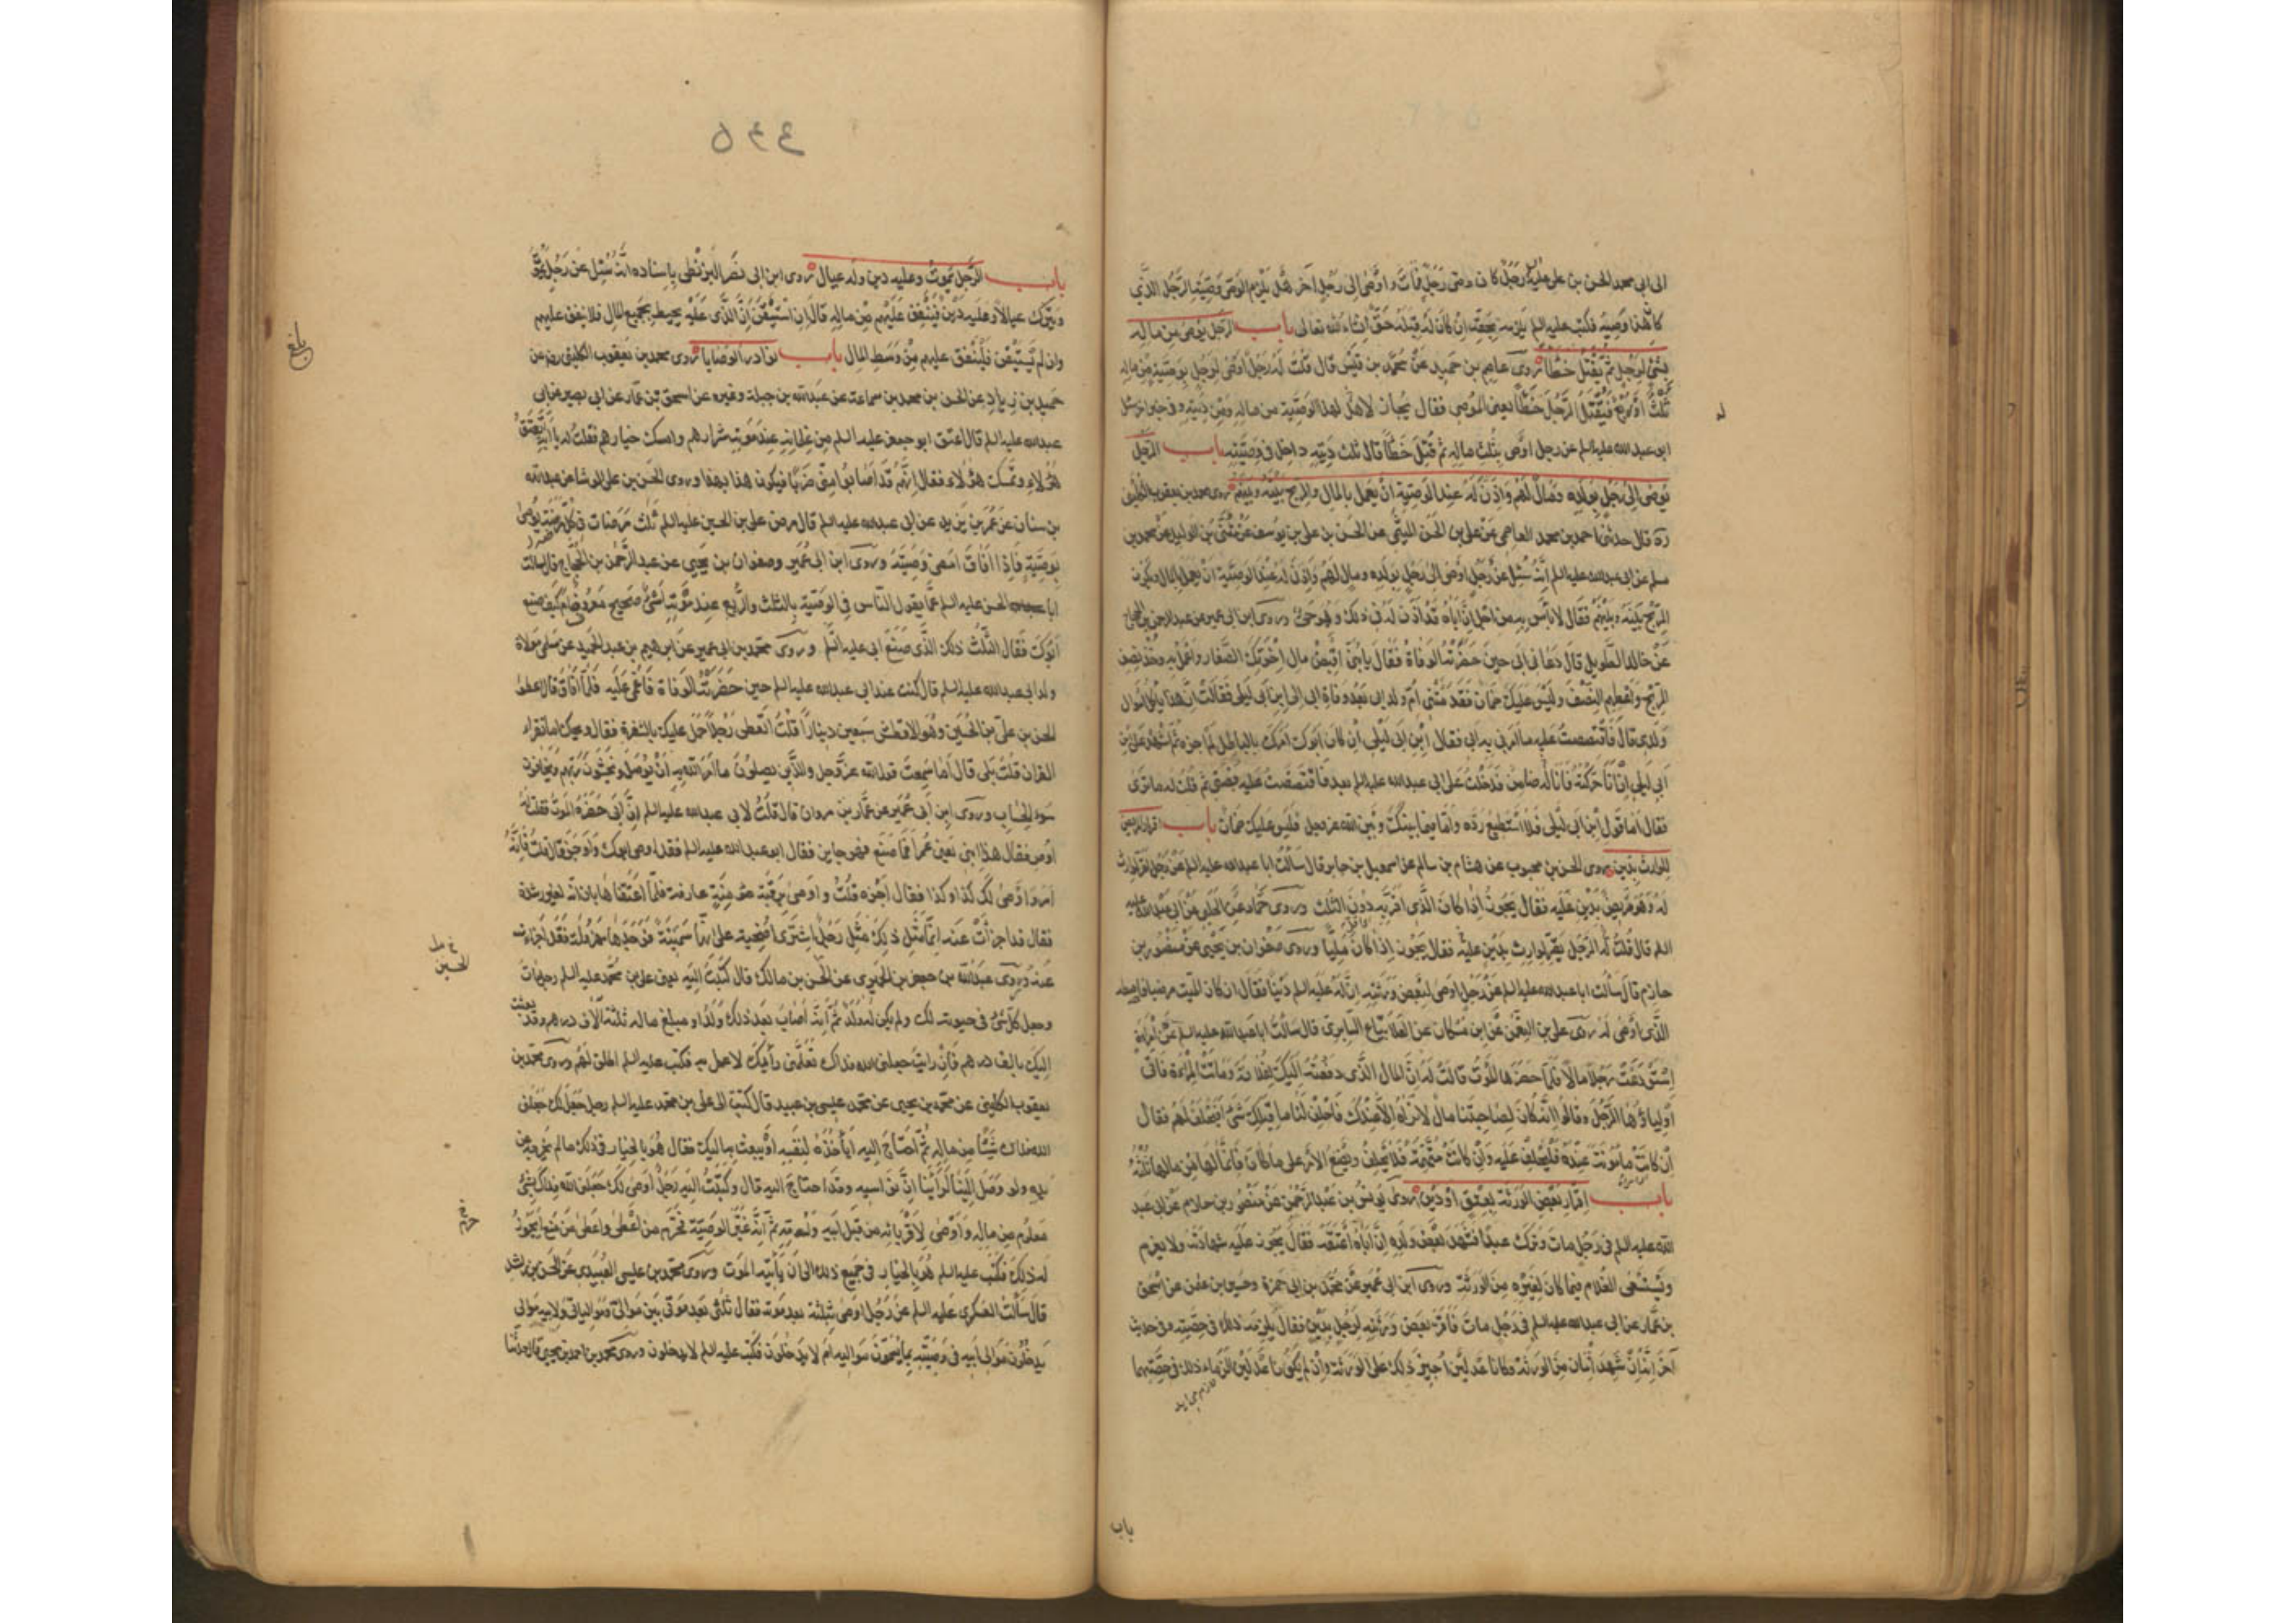 الى ابى محمد الحسن بن على عليه السلم رجل كان وصى رجل فمات واوصى الى رجل آخر هل يلزم الوصى وصية الرجل الذى
كان هذا وصيه فكتب عليه السلم يلزمه بحقه ان كان له قبله حق ان شاء الله تعالى باب الرجل يوصى من ماله
بشئ لرجل ثم يقتل خطأ روى عاصم بن حميد عن محمد بن قيس قال قلت له رجل اوصى لرجل بوصية من ماله
ثلث او ربع فيقتل الرجل خطأ يعنى الموصى فقال يجاز لاهل هذا الوصية من ماله ومن ديته وفى خبر آخر سئل
ابو عبد الله عليه السلم عن رجل اوصى بثلث ماله ثم قتل خطأ قال ثلث ديته داخل فى وصيته باب الرجل
يوصى الى رجل بولده ومال لهم واذن له عند الوصية ان يعمل بالمال والربح بينه وبينهم روى محمد بن يعقوب الكلينى
ره قال حدثنى احمد بن محمد العاصمى عن على بن الحسن الميثمى عن الحسن بن على بن يوسف عن مثنى بن الوليد عن محمد بن
مسلم عن ابى عبد الله عليه السلم انه سئل عن رجل اوصى الى رجل بولده ومال لهم واذن له عند الوصية ان يعمل بالمال ويكون
الربح بينه وبينهم فقال لا بأس به من اجل ان اباه قد اذن له فى ذلك وهو حى وروى ابن ابى عمير عن عبد الرحمن بن الحجاج
عن خالد الطويل قال دعانى ابى حين حضرته الوفاة فقال يا بنى اقبض مال اخوتك الصغار واعمل به وخذ نصف
الربح واعطهم النصف وليس عليك ضمان فقدمتنى ام ولد ابى بعد وفاة ابى الى ابن ابى ليلى فقالت ان هذا يأكل اموال
ولدى قال فاقتصصت عليه ما امرنى به ابى فقال ابن ابى ليلى ان كان ابوك امرك بالباطل لم اجزه ثم اشهد على ابن
ابى ليلى ان انا حركته فانا له ضامن فدخلت على ابى عبد الله عليه السلم بعد فاقتصصت عليه قصتى ثم قلت له ما ترى
فقال اما قول ابن ابى ليلى فلا استطيع رده واما فيما بينك وبين الله عز وجل فليس عليك ضمان باب اقرار المريض
للوارث بدين روى الحسن بن محبوب عن هشام بن سالم عن اسمعيل بن جابر قال سالت ابا عبد الله عليه السلم عن رجل اقر لوارث
له وهو مريض بدين عليه فقال يجوز اذا كان الذى اقر به دون الثلث وروى حماد عن الحلبى عن ابى عبد الله عليه
السلم قال قلت له الرجل يقر لوارث بدين عليه فقال يجوز اذا كان مليا وروى صفوان بن يحيى عن منصور بن
حازم قال سألت ابا عبد الله عليه السلم عن رجل اوصى لبعض ورثته ان له عليه دينا فقال ان كان الميت مرضيا فاعطه
الذى اوصى له روى على بن النعمن عن ابن مسكان عن العلا بياع السابرى قال سالت ابا عبد الله عليه السلم عن امرأة
استودعت رجلا مالا فلما حضرها الموت قالت له ان المال الذى دفعته اليك لفلانة وماتت المرءة فاتى
اولياؤها الرجل وقالوا انه كان لصاحبتنا مال لا نراه الا عندك فاحلف لنا ما قبلك شئ افيحلف لهم فقال
ان كانت مأمونة عنده فليحلف وان كانت متهمة فلا يحلف ويضع الامر على ما كان فانما لها من مالها ثلثه
باب اقرار بعض الورثة بعتق او دين روى يونس بن عبد الرحمن عن منصور بن حازم عن ابى عبد
الله عليه السلم فى رجل مات وترك عبدا فشهد بعض ولده ان اباه اعتقه فقال يجوز عليه شهادته ولا يغرم
ويستسعى الغلام فيما كان لغيره من الورثة وروى ابن ابى عمير عن محمد بن ابى حمزة وحسين بن عثمن عن اسحق
بن عمار عن ابى عبد الله عليه السلم فى رجل مات فاقر بعض ورثته لرجل بدين فقال يلزمه ذلك فى حصته وفى حديث
آخر انه ان شهد اثنان من الورثة وكانا عدلين اجيز ذلك على الورثة وان لم يكونا عدلين الزما ذلك فى حصتهما
باب
باب الرجل يموت وعليه دين وله عيال روى ابن ابى نصر البزنطى باسناده انه سئل عن رجل يموت
ويترك عيالا وعليه دين فينفق عليهم من ماله قال ان استيقن ان الذى عليه يحيط بجميع المال فلا ينفق عليهم
وان لم يستيقن فلينفق عليهم من وسط المال باب نوادر الوصايا روى محمد بن يعقوب الكلينى رض عن
حميد بن زياد عن الحسن بن محمد بن سماعة عن عبد الله بن جبلة وغيره عن اسحق بن عمار عن ابى بصير عن ابى
عبد الله عليه السلم قال اعتق ابو جعفر عليه السلم من غلمانه عند موته شرارهم وامسك خيارهم فقلت له يا ابه تعتق
هؤلاء وتمسك هؤلاء فقال انهم قد اصابوا منى ضربا فيكون هذا بهذا وروى الحسن بن على الوشا عن عبد الله
بن سنان عن عمر بن يزيد عن ابى عبد الله عليه السلم قال مرض على بن الحسين عليه السلم ثلث مرضات فى كل مرضة يوصى
بوصية فاذا افاق امضى وصيته وروى ابن ابى عمير وصفوان بن يحيى عن عبد الرحمن بن الحجاج قال سالت
ابا الحسن عليه السلم عما يقول الناس فى الوصية بالثلث والربع عند موته اشئ صحيح معروف ام كيف صنع
ابوك فقال الثلث ذلك الذى صنع ابى عليه السلم وروى محمد بن ابى عمير عن ابرهيم بن عبد الحميد عن سلمى مولاة
ولد ابى عبد الله عليه السلم قال كنت عند ابى عبد الله عليه السلم حين حضرته الوفاة فاغمى عليه فلما افاق قال اعطوا
الحسن بن على بن الحسين وهو الافطس سبعين دينارا قلت اتعطى رجلا حمل عليك بالشفرة فقال ويحك اما تقراء
القران قلت بلى قال اما سمعت قول الله عز وجل والذين يصلون ما امر الله به ان يوصل ويخشون ربهم ويخافون
سوء الحساب وروى ابن ابى عمير عن عمار بن مروان قال قلت لابى عبد الله عليه السلم ان ابى حضره الموت فقلت له
اوص فقال هذا ابنى يعنى عمر فما صنع فهو جايز فقال ابو عبد الله عليه السلم فقد اوصى ابوك واوجز قال قلت فانه
امر واوصى لك بكذا وكذا فقال اجزه قلت واوصى برقبة مؤمنة عارفة فلما اعتقناها بان انه لغير رشدة
فقال قد اجزأت عنه انما مثل ذلك مثل رجل اشترى اضحية على انها سمينة فوجدها مهزولة فقد اجزأت
عنه وروى عبد الله بن جعفر الحميرى عن الحسن بن مالك قال كتبت اليه يعنى على بن محمد عليه السلم رجل مات
وجعل كل شئ فى حيوته لك ولم يكن له ولد ثم انه اصاب بعد ذلك ولدا ومبلغ ماله ثلثة آلاف درهم وقد بعثت
اليك بالف درهم فان رايت جعلنى الله فداك تعلمنى رأيك لاعمل به فكتب عليه السلم اطلق لهم وروى محمد بن
يعقوب الكلينى عن محمد بن يحيى عن محمد بن عيسى بن عبيد قال كتبت الى على بن محمد عليه السلم رجل جعل لك جعلنى
الله فداك شيئا من ماله ثم احتاج اليه ايأخذه لنفسه او يبعث به اليك فقال هو بالخيار فى ذلك ما لم يخرجه عن
يده ولو وصل الينا لرأينا ان نواسيه وقد احتاج اليه قال وكتبت اليه رجل اوصى لك جعلنى الله فداك بشئ
معلوم من ماله واوصى لاقربائه من قبل ابيه وامه ثم انه غير الوصية فحرم من اعطى واعطى من منع ايجوز
له ذلك فكتب عليه السلم هو بالخيار فى جميع ذلك الى ان يأتيه الموت وروى محمد بن عيسى العبيدى عن الحسن بن راشد
قال سألت العسكرى عليه السلم عن رجل اوصى بثلثه بعد موته فقال ثلثى بعد موتى بين موالى وموالياتى ولابيه موالى
يدخلون موالى ابيه فى وصيته بما يسمون مواليه ام لا يدخلون فكتب عليه السلم لا يدخلون وروى محمد بن احمد بن يحيى قال حدثنا
الحسين